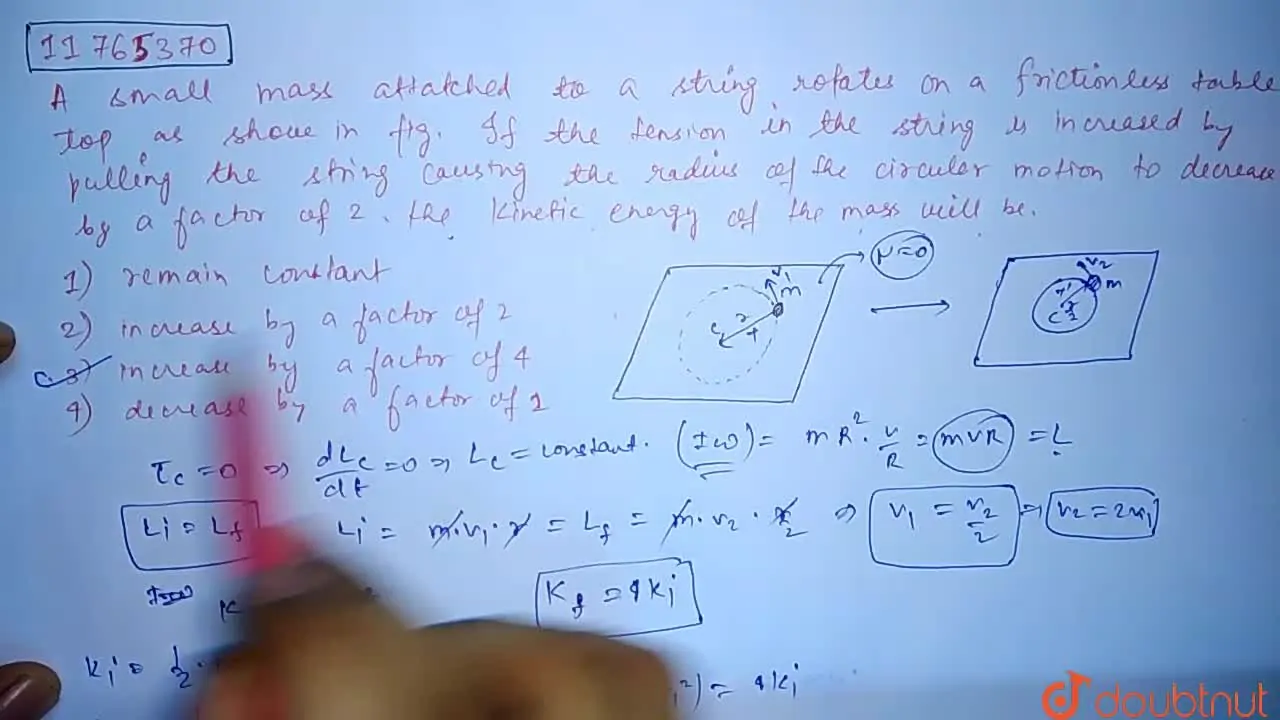 11765370
A small mass attatched to a string rotates on a frictionless table
top as shown in fig. If the tension in the string is increased by
pulling the string causing the radius of the circular motion to decrease
by a factor of 2. the Kinetic energy of the mass will be.
1) remain constant
2) increase by a factor of 2
3) increase by a factor of 4
4) decrease by a factor of 2
v1 m r T C
μ=0
v2 m r' r/2 C
τc=0 ⇒ dLc/dt=0 ⇒ Lc=constant. (Iω)= mR²·v/R = mvR = L
Li = Lf Li = m·v1·r = Lf = m·v2·r/2 ⇒ v1 = v2/2 ⇒ v2=2v1
K Kf = 4Ki
Ki = 1/2· ²) = 4Ki
doubtnut